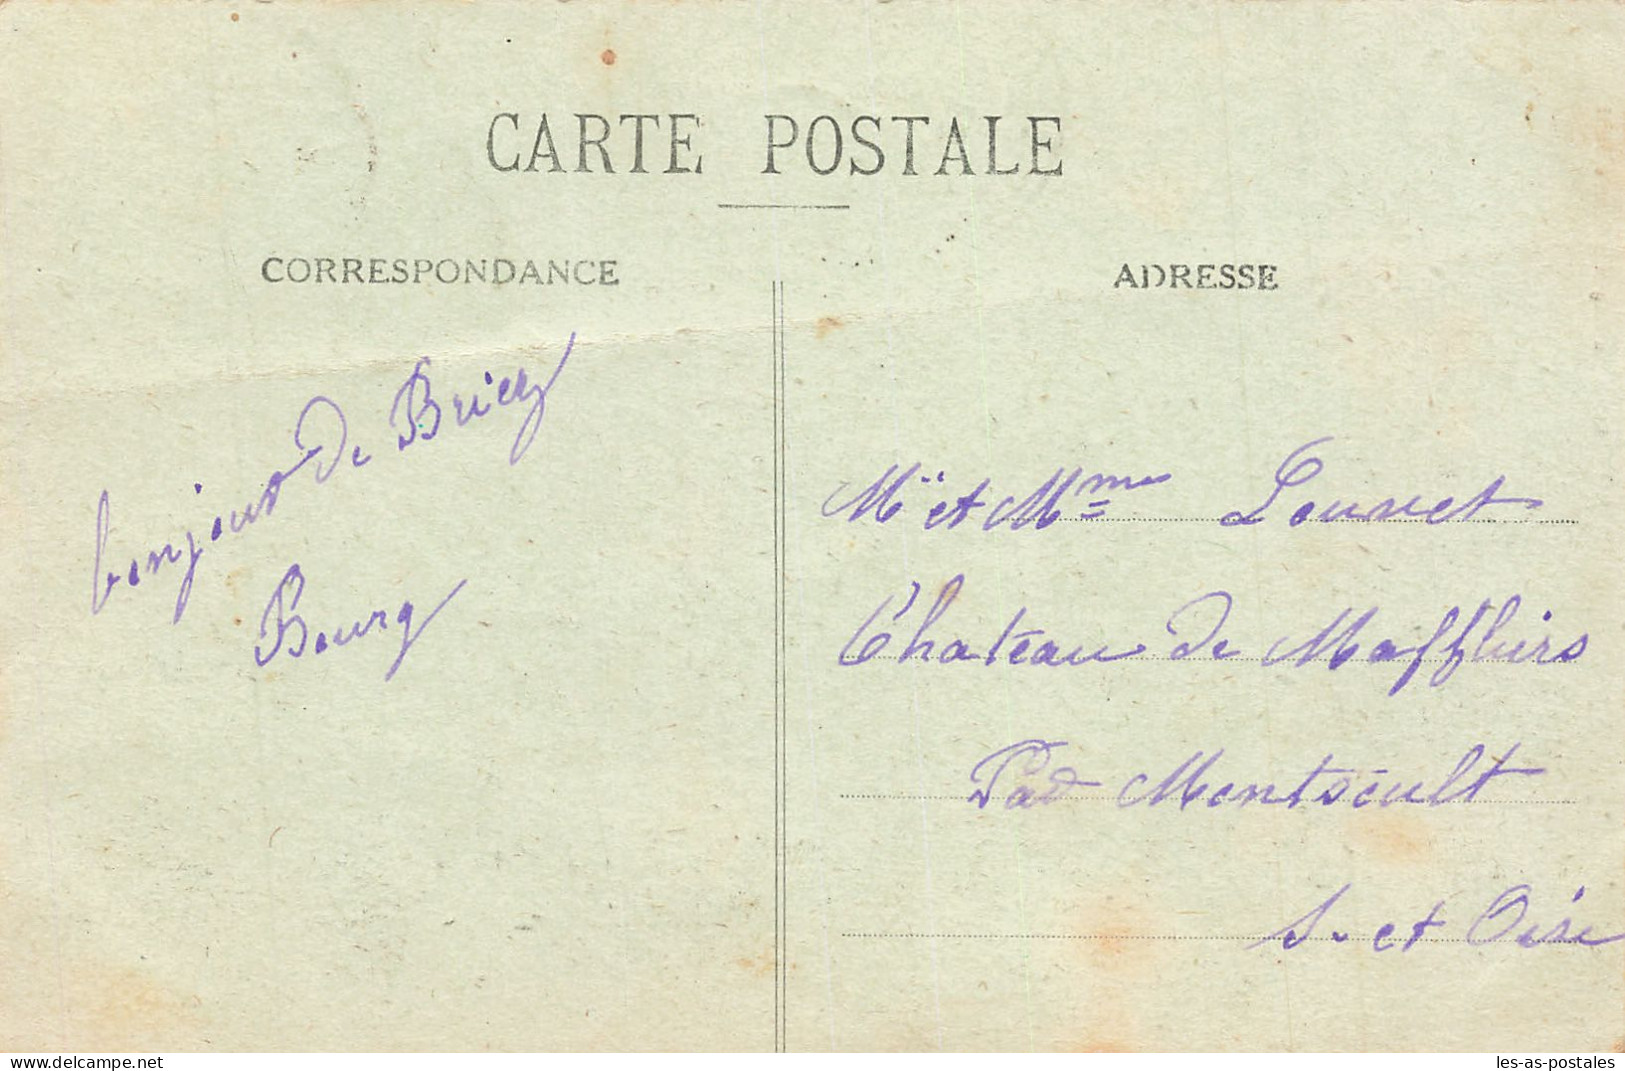 CARTE POSTALE
CORRESPONDANCE
bonjour de Briey
Bourg
ADRESSE
Mr et Mme Louvet
Château de Maffliers
Par Montsoult
S. et Oise
www.delcampe.net
les-as-postales